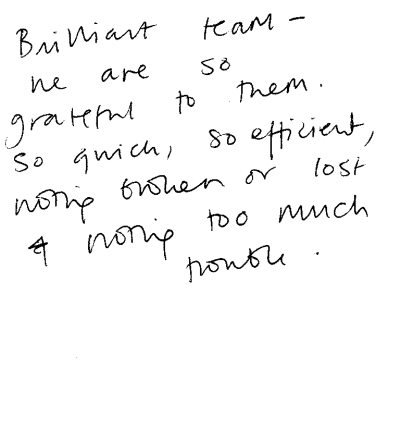 Brilliant team -
we are so
grateful to them.
So quick, so efficient,
nothing broken or lost
& nothing too much
trouble.